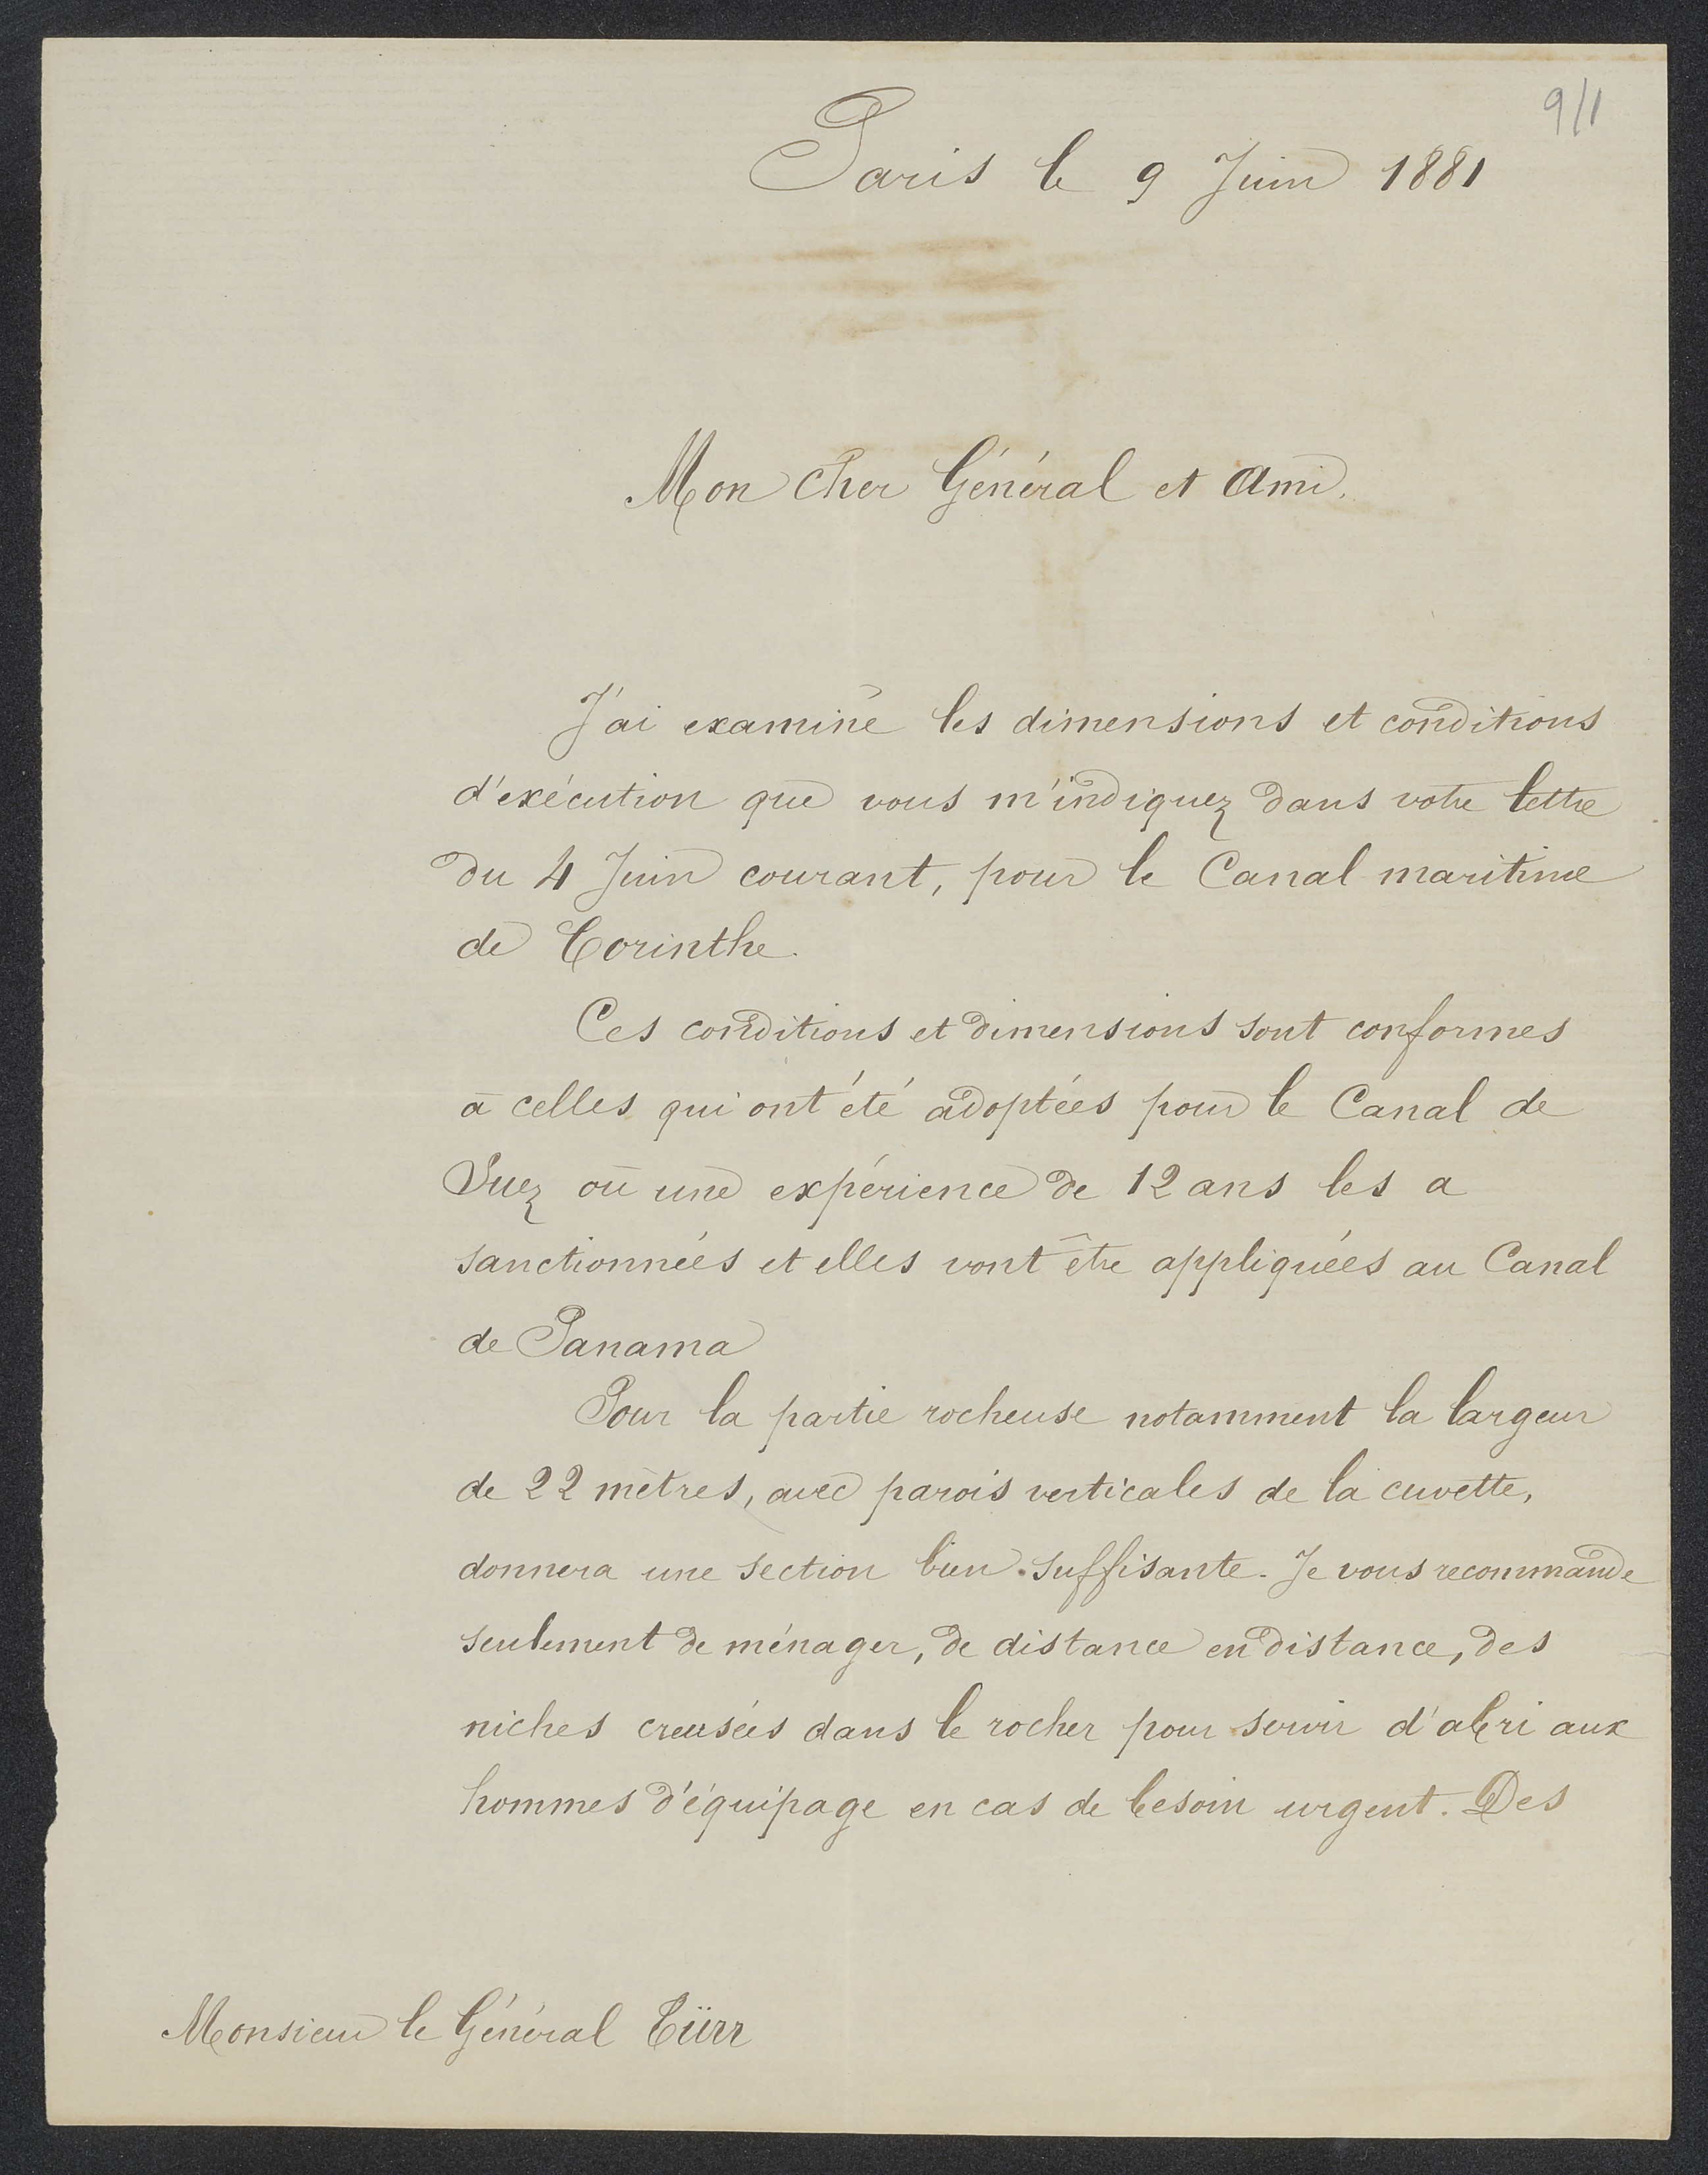 9/1
Paris le 9 Juin 1881
Mon cher Général et Ami,
J'ai examiné les dimensions et conditions
d'exécution que vous m'indiquez dans votre lettre
du 4 Juin courant, pour le Canal maritime
de Corinthe.
Ces conditions et dimensions sont conformes
à celles qui ont été adoptées pour le Canal de
Suez où une expérience de 12 ans les a
sanctionnées et elles vont être appliquées au Canal
de Panama
Pour la partie rocheuse notamment la largeur
de 22 mètres, avec parois verticales de la cuvette,
donnera une section bien suffisante. Je vous recommande
seulement de ménager, de distance en distance, des
niches creusées dans le rocher pour servir d'abri aux
hommes d'équipage en cas de besoin urgent. Des
Monsieur le Général Türr